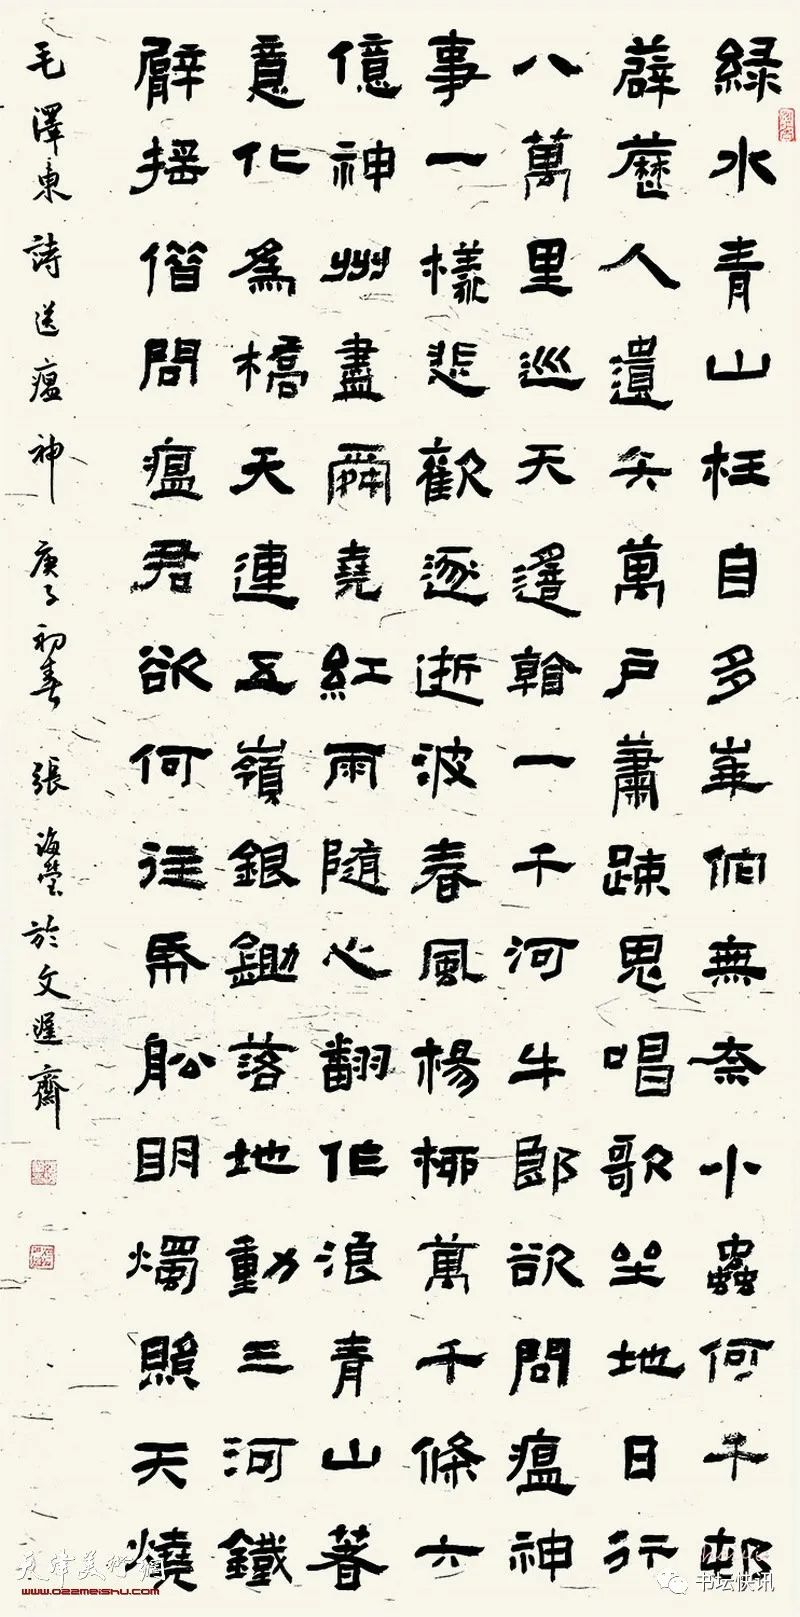 綠水青山枉自多崋佗無奈小蟲何千邨
薜藶人遺矢萬戶蕭疎鬼唱歌坐地日行
八萬里巡天遙看一千河牛郎欲問瘟神
事一樣悲歡逐逝波春風楊柳萬千條六
億神州盡舜堯紅雨隨心翻作浪青山著
意化為橋天連五嶺銀鋤落地動三河鐵
臂搖借問瘟君欲何往帋舩明燭照天燒
毛澤東詩送瘟神 庚子初春 張海瑩於文遲齋
天津美術網
www.022meishu.com
书坛快讯